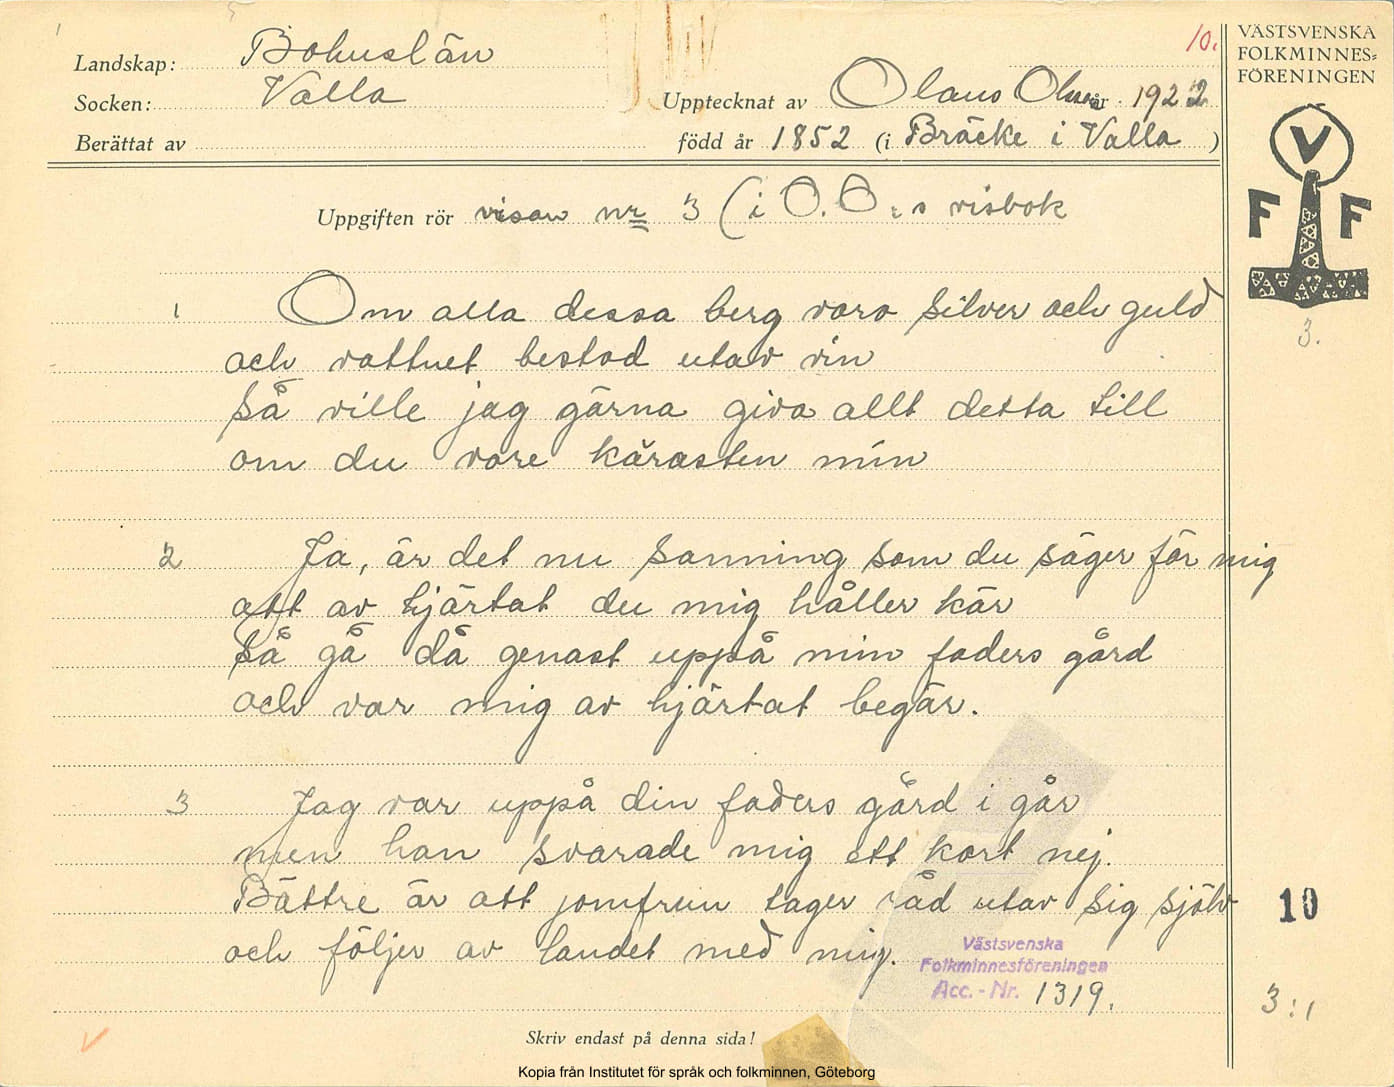 10.
VÄSTSVENSKA
FOLKMINNES=
FÖRENINGEN
V
F F
Landskap: Bohuslän
Socken: Valla
Berättat av
Upptecknat av Olaus Olsson år 1922
född år 1852 (i Bräcke i Valla )
Uppgiften rör visan nr 3 (i O. O:s visbok
3.
1 Om alla dessa berg voro silver och guld
och vattnet bestod utav vin
så ville jag gärna giva allt detta till
om du vore kärasten min
2 Ja, är det nu sanning som du säger för mig
att av hjärtat du mig håller kär
så gå då genast uppå min faders gård
och var mig av hjärtat begär.
3 Jag var uppå din faders gård i går
men han svarade mig ett kort nej.
Bättre är att jomfrun tager råd utav sig själv
och följer av landet med mig.
10
Västsvenska
Folkminnesföreningen
Acc.-Nr. 1319.
3:1
Skriv endast på denna sida!
Kopia från Institutet för språk och folkminnen, Göteborg